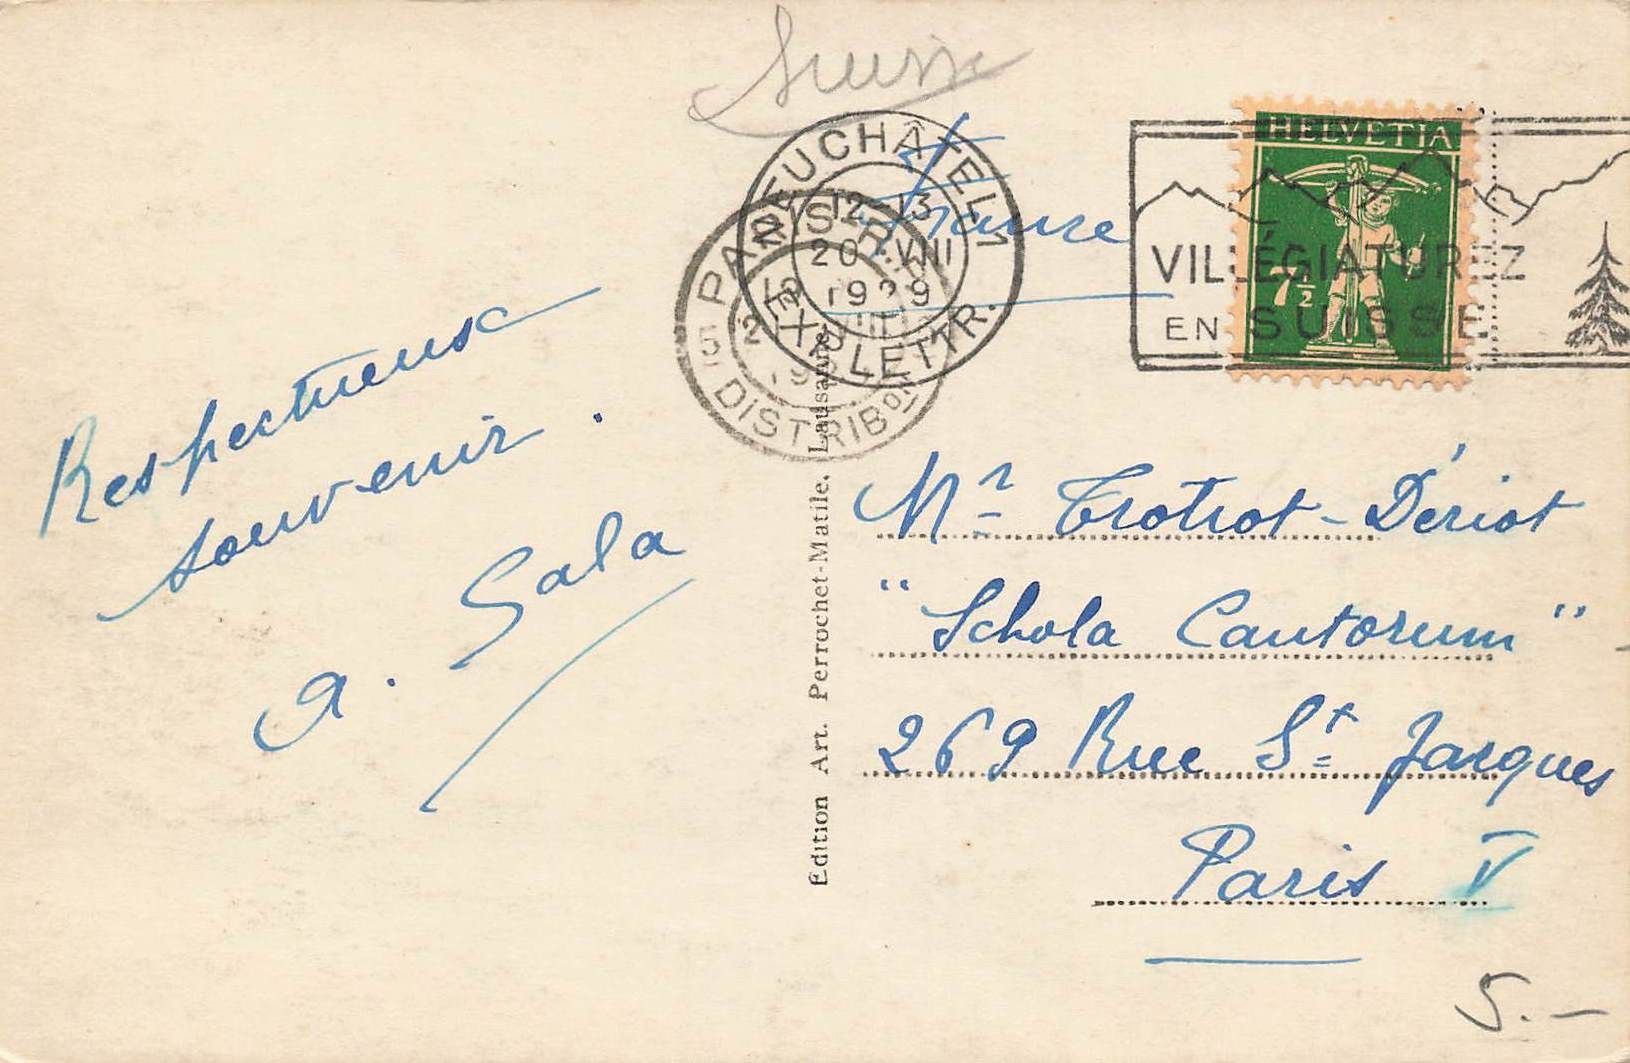 Suisse
France
NEUCHÂTEL 1
12-13
20 VIII
1929
EXP. LETTR.
PARIS
DISTRIBon
HELVETIA
7½
VILLÉGIATUREZ
EN SUISSE
Respectueux
souvenir.
a. Sala
Edition Art. Perrochet-Matile, Lausanne
Mr Trotrot-Dériot
"Schola Cantorum"
269 Rue St Jacques
Paris V
5.-